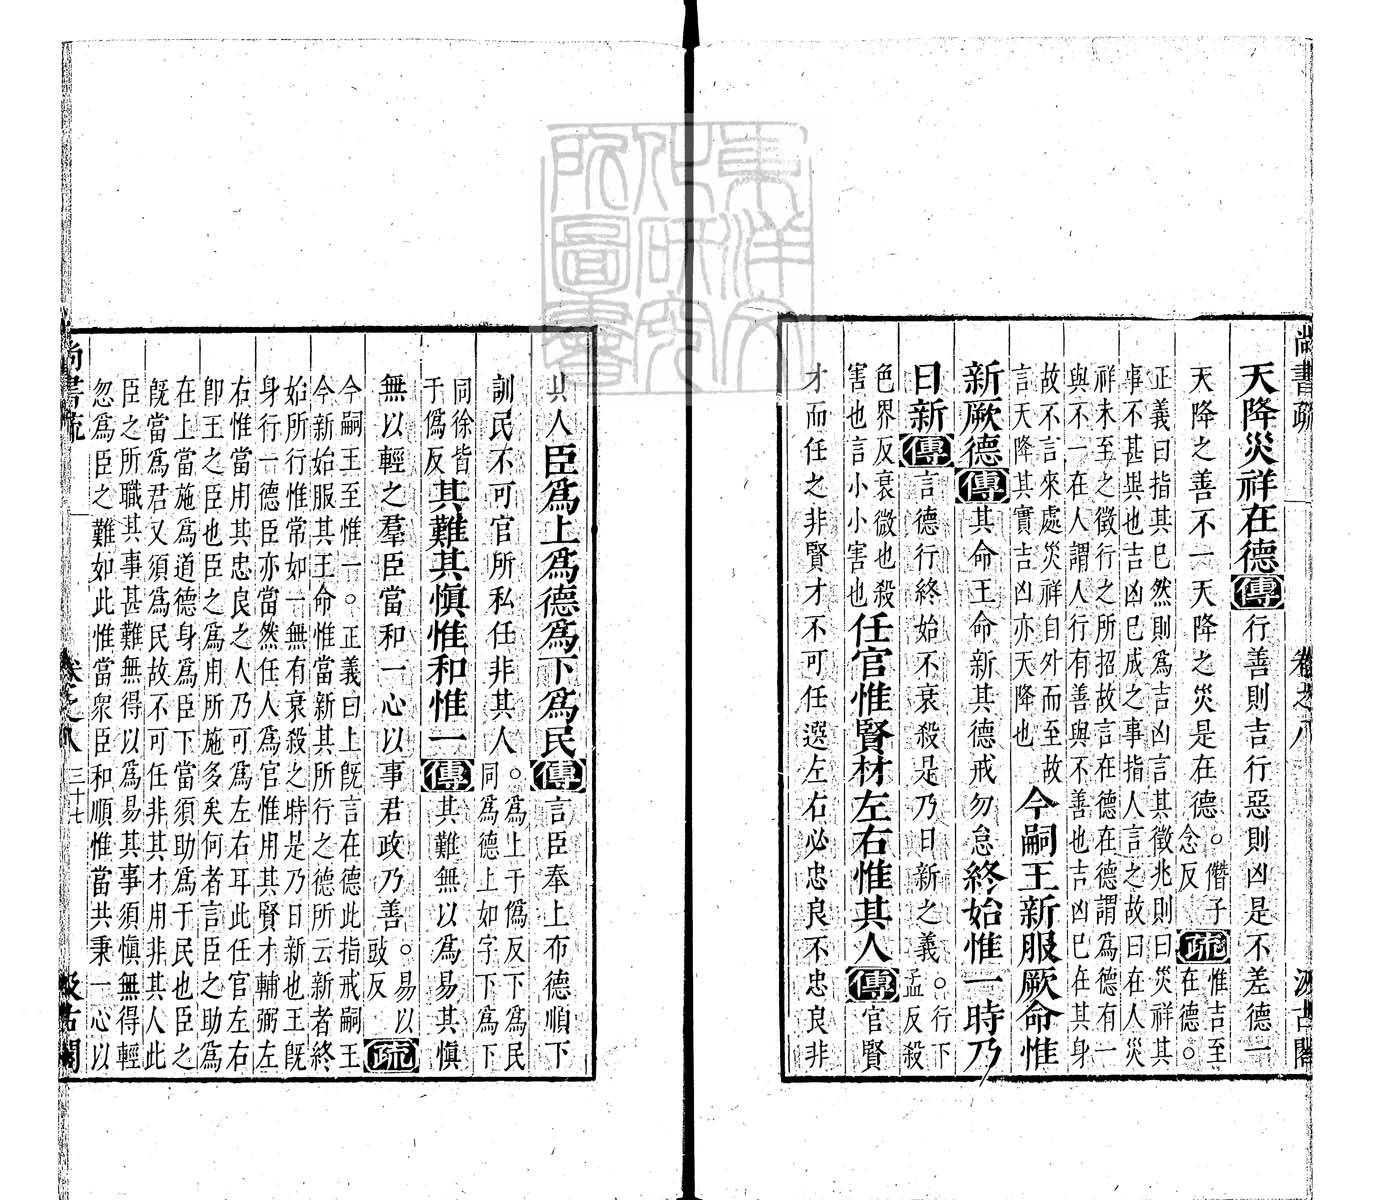 尚書疏 卷之八 汲古閣
天降災祥在德傳行善則吉行惡則凶是不差德一
天降之善不一天降之災是在德。僭子念反疏惟吉至在德。
正義曰指其已然則爲吉凶言其徵兆則曰災祥其
事不甚異也吉凶已成之事指人言之故曰在人災
祥未至之徵行之所招故言在德在德謂爲德有一
與不一在人謂人行有善與不善也吉凶已在其身
故不言來處災祥自外而至故
言天降其實吉凶亦天降也
今嗣王新服厥命惟
新厥德傳其命王命新其德戒勿怠終始惟一時乃
日新傳言德行終始不衰殺是乃日新之義。行下孟反殺
色界反衰微也殺
害也言小小害也
任官惟賢材左右惟其人傳官賢
才而任之非賢才不可任選左右必忠良不忠良非
其人臣爲上爲德爲下爲民傳言臣奉上布德順下
訓民不可官所私任非其人。爲上于僞反下爲民同爲德上如字下爲下
同徐皆
于僞反
其難其慎惟和惟一傳其難無以爲易其慎
無以輕之羣臣當和一心以事君政乃善。易以豉反疏
今嗣王至惟一。正義曰上旣言在德此指戒嗣王
今新始服其王命惟當新其所行之德所云新者終
始所行惟常如一無有衰殺之時是乃日新也王旣
身行一德臣亦當然任人爲官惟用其賢才輔弼左
右惟當用其忠良之人乃可爲左右耳此任官左右
卽王之臣也臣之爲用所施多矣何者言臣之助爲
在上當施爲道德身爲臣下當須助爲于民也臣之
旣當爲君又須爲民故不可任非其才用非其人此
臣之所職其事甚難無得以爲易其事須愼無得輕
忽爲臣之難如此惟當衆臣和順惟當共秉一心以
尚書疏 卷之八 三十七 汲古閣